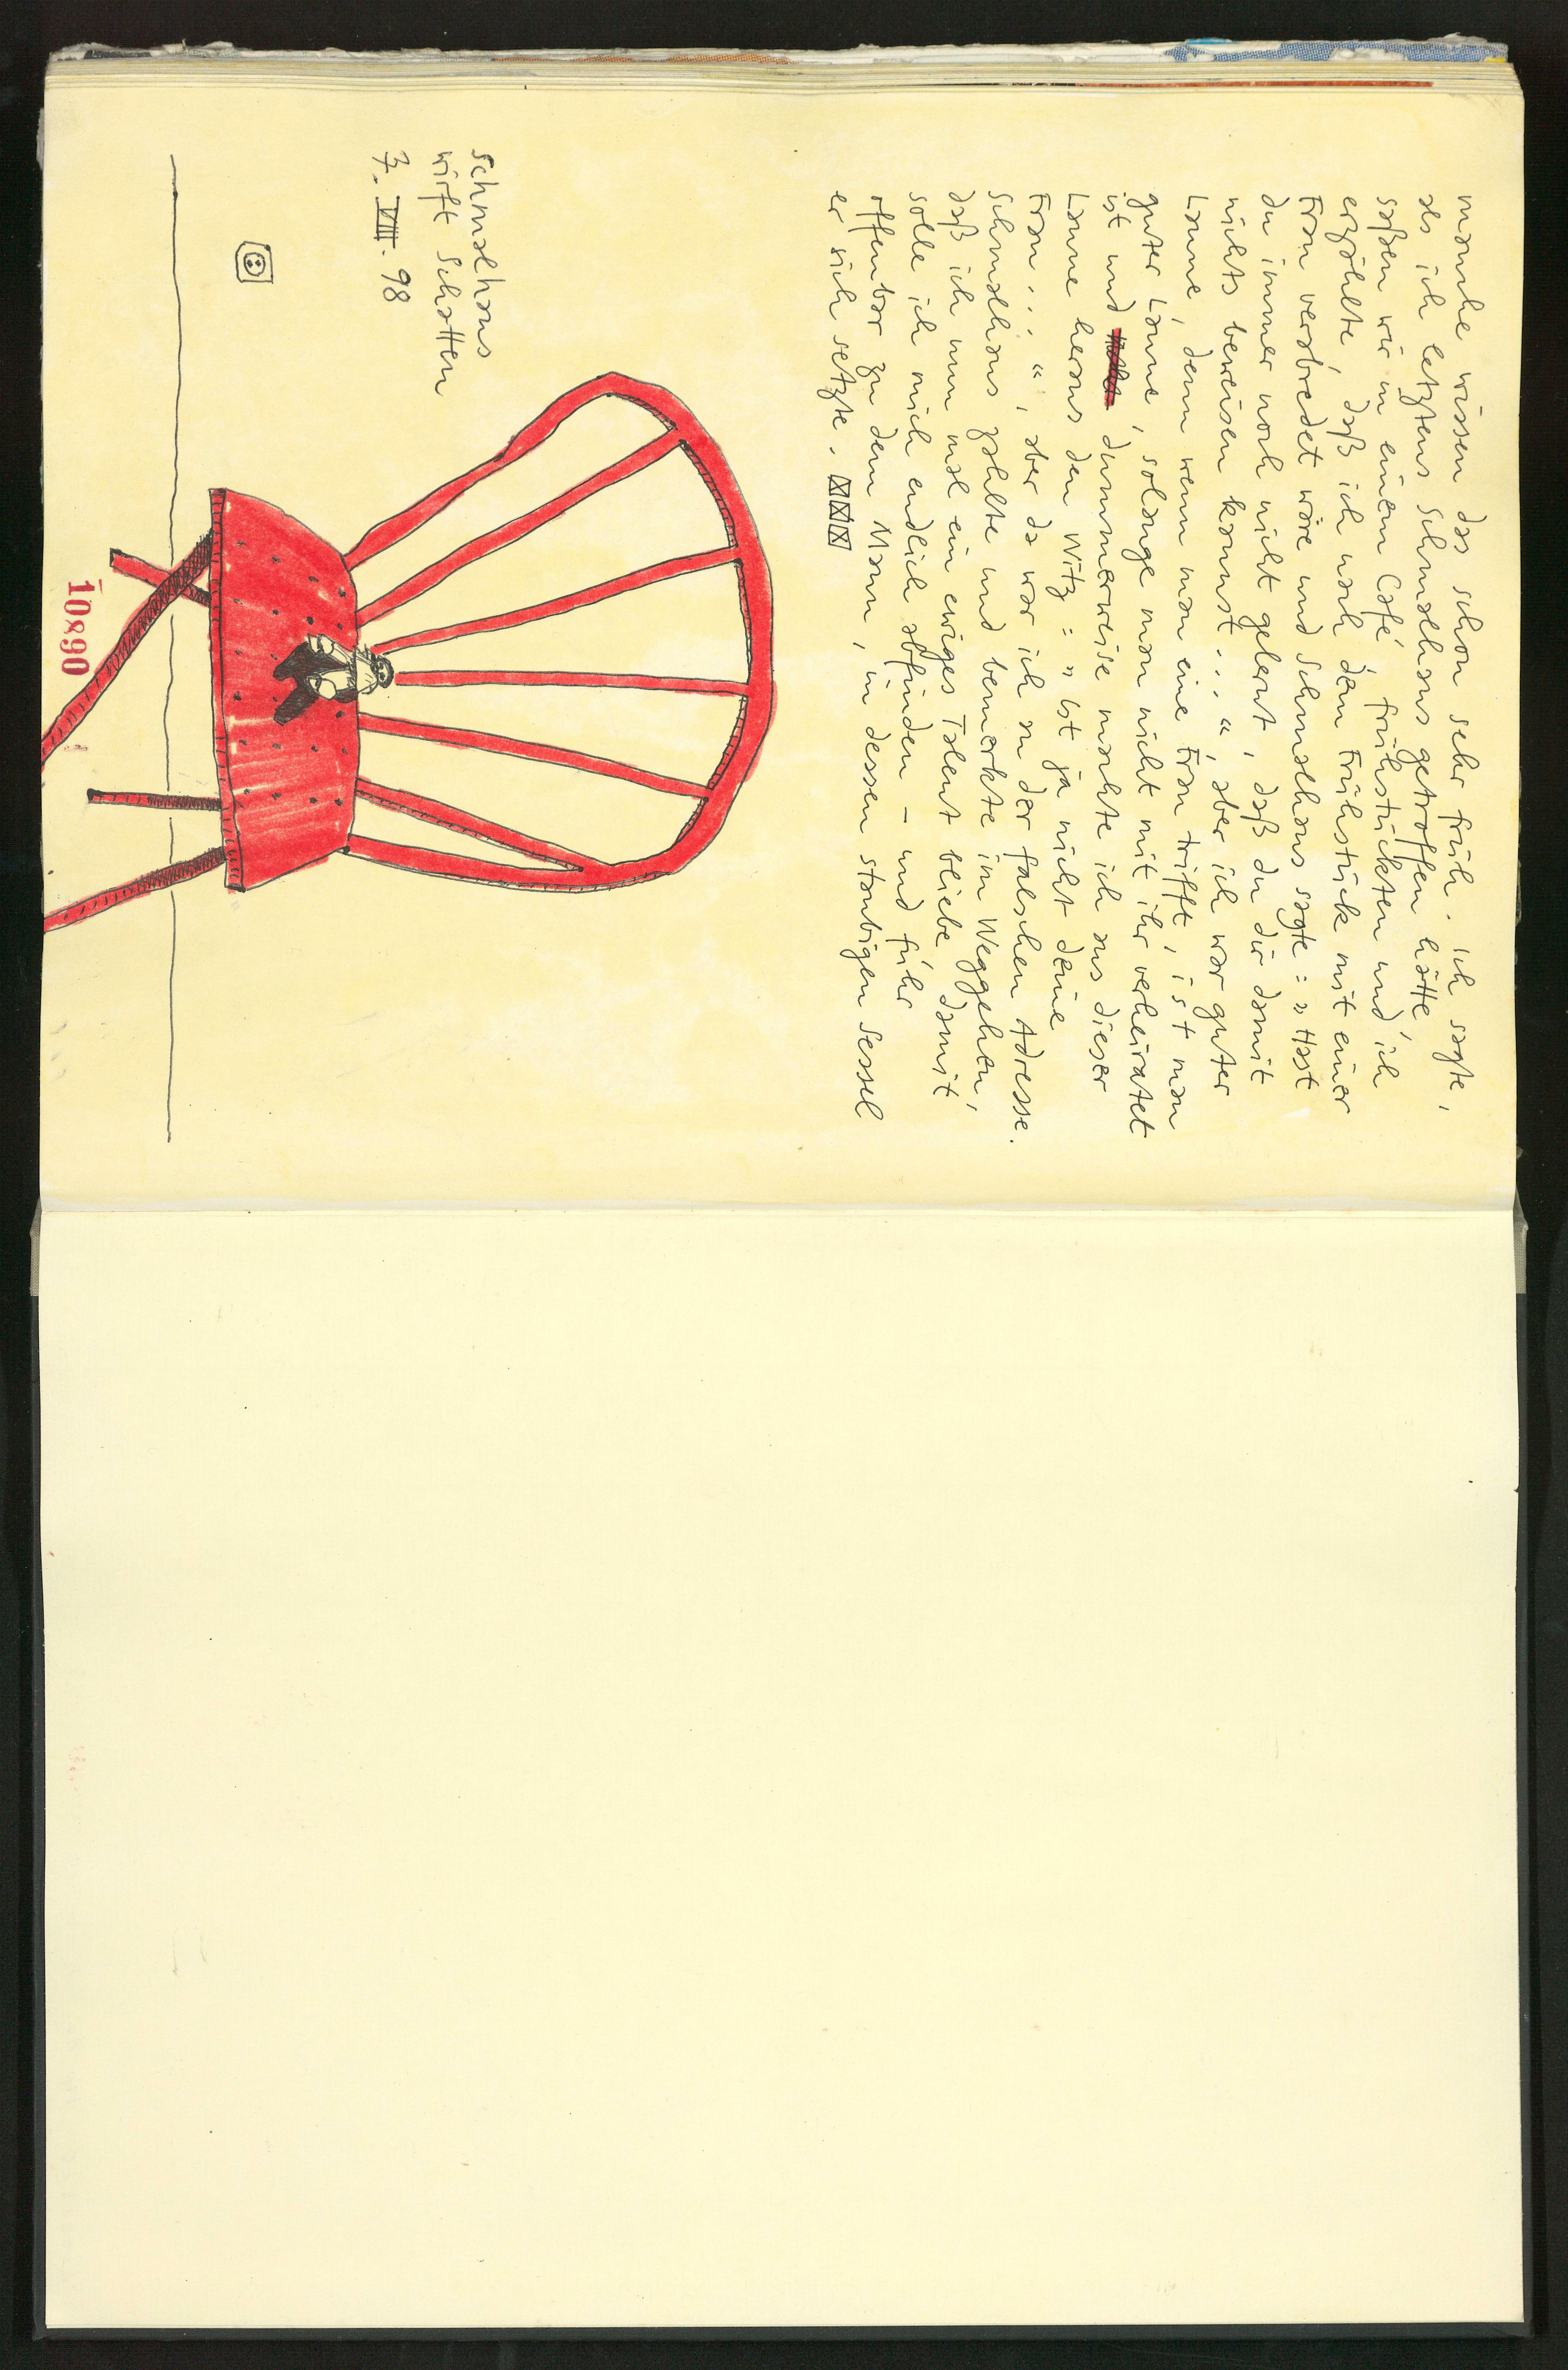 manche wissen das schon sehr früh. ich sagte,
als ich letztens Schmalhans getroffen hätte,
saßen wir in einem Café, frühstückten und ich
erzählte, daß ich nach dem Frühstück mit einer
Frau verabredet wäre und Schmalhans sagte: „Hast
du immer noch nicht gelernt, daß du dir damit
nichts beweisen kannst...“, aber ich war guter
Laune, denn wenn man eine Frau trifft, ist man
guter Laune, solange man nicht mit ihr verheiratet
ist und dummerweise machte ich aus dieser
Laune heraus den Witz: „Ist ja nicht deine
Frau...“, aber da war ich an der falschen Adresse.
Schmalhans zahlte und bemerkte im Weggehen,
daß ich nun mal ein ewiges Talent bliebe, damit
solle ich mich endlich abfinden – und fuhr
offenbar zu dem Mann, in dessen staubigen Sessel
er sich setzte.
Schmalhans
wirft Schatten
7. VIII. 98
10890